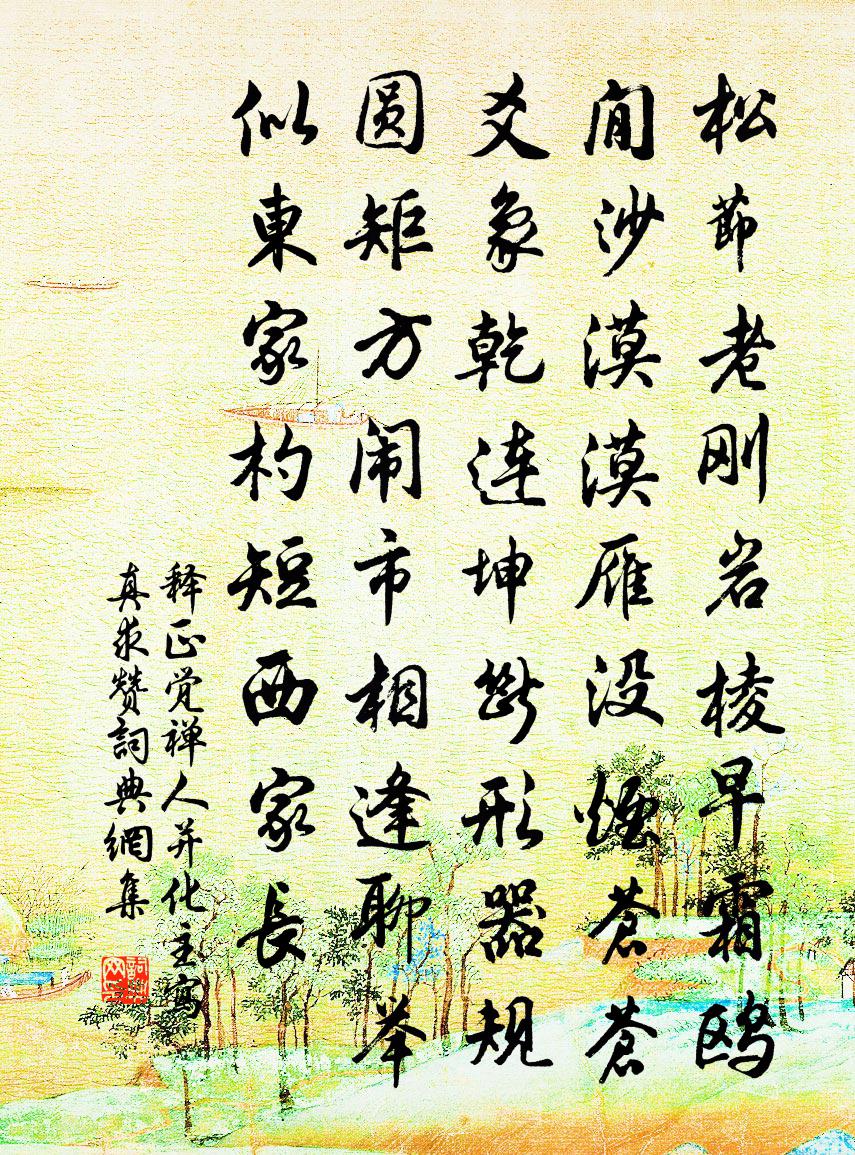 松節老刚岩棱早霜鸥
閒沙漠漠雁没烟苍苍
爻象乾連坤断形器规
圆矩方闹市相逢聊举
似東家杓短西家長
释正觉禅人并化主寫
真求赞詞典網集